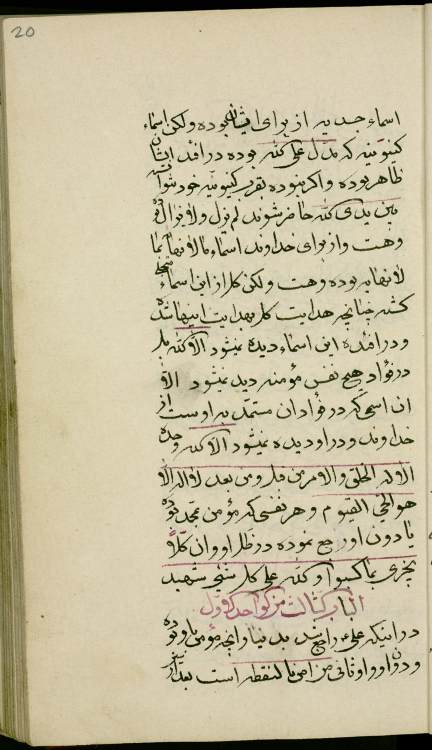 20
اسماء جسدیه از برای ایشان بوده ولکن اسماء
کینونیه که یدل علی الله بوده در افئده ایشان
ظاهر بوده واکر نبوده بقرب کینونیه خود
بین یدی الله حاضر شوند لم یزل ولا یزال
وهست واز برای خداوند اسماء مالانهایه بما
لانهایه بوده وهست ولکن کل از این اسماء
کشته چنانچه هدایت کل بهدایت اینها شده
ودر افئده این اسماء دیده نمیشود الا الله بل
در فؤاد هیچ نفس مؤمنه دیده نمیشود الا
ان اسمی که در فؤاد ان مستمد به اوست از
خداوند ودر او دیده نمیشود الا الله وحده
الا له الخلق والامر من قبل ومن بعد لا اله الا
هو الحی القیوم وهر نفسی که مؤمن بمحمد بوده
یا دون او رجع نموده در ظل او وان کلا
یجزی بما کسبوا والله علی کل شیء شهید
الباب الثالث من الواحد الاول
در اینکه علی ع راجع شد بدنیا وانچه مؤمن باو بوده
ودون او واو ثانی من امن بالنقطه است بعد از